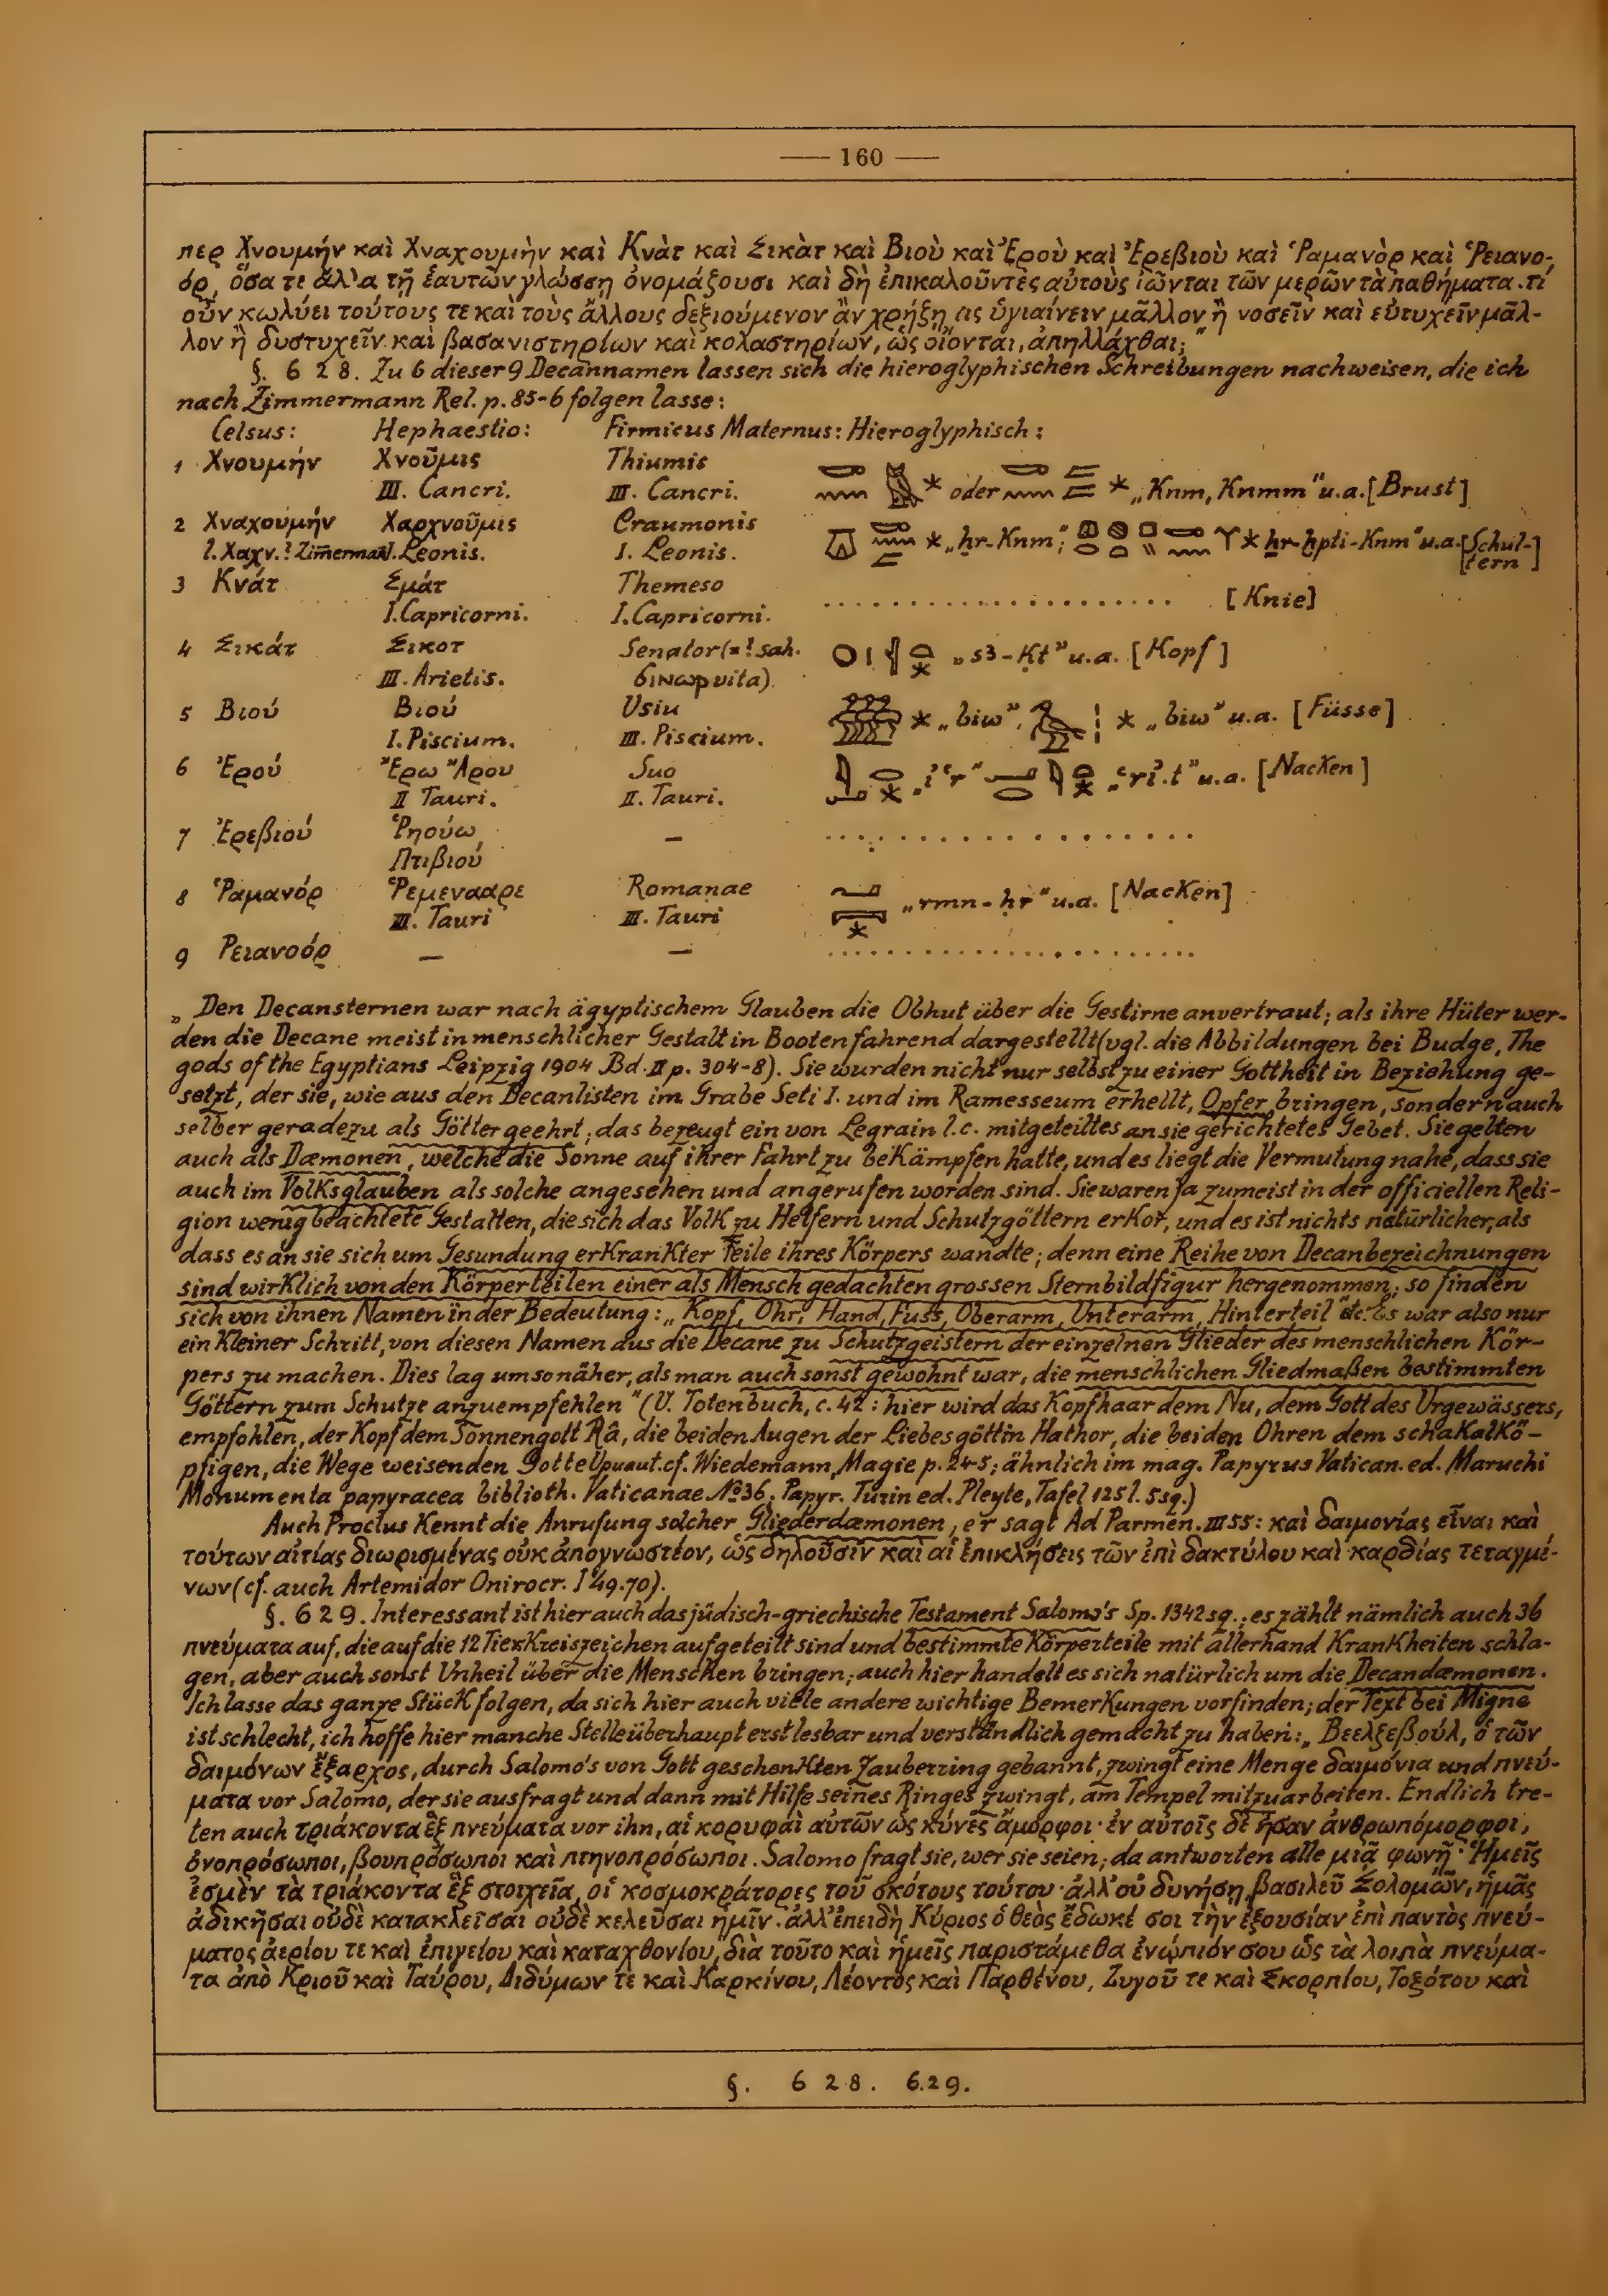 — 160 —
περ Χνουμήν καὶ Χναχουμὴν καὶ Κνὰτ καὶ Σικὰτ καὶ Βιοὺ καὶ Ἐροὺ καὶ Ἐρεβιοὺ καὶ Ῥαμανὸρ καὶ Ῥειανο-
όρ, ὅσα τε ἄλλα τῇ ἑαυτῶν γλώσσῃ ὀνομάζουσι καὶ δὴ ἐπικαλοῦντες αὐτοὺς ἰῶνται τῶν μερῶν τὰ παθήματα. τί
οὖν κωλύει τούτους τε καὶ τοὺς ἄλλους δεξιούμενον ἂν χρήξῃ τις ὑγιαίνειν μᾶλλον ἢ νοσεῖν καὶ εὐτυχεῖν μᾶλ-
λον ἢ δυστυχεῖν καὶ βασανιστηρίων καὶ κολαστηρίων, ὡς οἴονται, ἀπηλλάχθαι;"
§. 628. Zu 6 dieser 9 Decannamen lassen sich die hieroglyphischen Schreibungen nachweisen, die ich
nach Zimmermann Rel. p. 85-6 folgen lasse:
Celsus: Hephaestio: Firmicus Maternus: Hieroglyphisch:
1 Χνουμήν Χνοῦμις Thiumis
III. Cancri. III. Cancri. * oder * „Knm, Knmm" u.a. [Brust]
2 Χναχουμήν Χαρχνοῦμις Craumonis
l. Χαχν.? Zimmerman I. Leonis. I. Leonis. * „ẖr-Knm"; * ẖr-ḫpti-Knm" u.a. [Schul-
tern]
3 Κνάτ Σμάτ Themeso
I. Capricorni. I. Capricorni. . . . . . [Knie]
4 Σικάτ Σικοτ Senator (=? sah.
III. Arietis. vita). „s3-ḳt" u.a. [Kopf]
5 Βιού Βιού Usiu
I. Piscium. III. Piscium. * „biw", * „biw" u.a. [Füsse]
6 Ἐρού Ἔρω Ἄρου Suo
II Tauri. II. Tauri. „i'r" „'ri.t" u.a. [Nacken]
7 Ἐρεβιού Ῥηούω — . . . . .
Πτιβιού
8 Ῥαμανόρ Ῥεμεναάρε Romanae
III. Tauri III. Tauri „rmn-ḥr" u.a. [Nacken]
9 Ρειανοόρ — — . . . . .
„Den Decansternen war nach ägyptischem Glauben die Obhut über die Gestirne anvertraut; als ihre Hüter wer-
den die Decane meist in menschlicher Gestalt in Booten fahrend dargestellt (vgl. die Abbildungen bei Budge, The
gods of the Egyptians Leipzig 1904 Bd. II p. 304-8). Sie wurden nicht nur selbst zu einer Gottheit in Beziehung ge-
setzt, der sie, wie aus den Decanlisten im Grabe Seti I. und im Ramesseum erhellt, Opfer bringen, sondern auch
selber geradezu als Götter geehrt; das bezeugt ein von Legrain l.c. mitgeteiltes an sie gerichtetes Gebet. Sie gelten
auch als Dæmonen, welche die Sonne auf ihrer Fahrt zu beKämpfen hatte, und es liegt die Vermutung nahe, dass sie
auch im VolKsglauben als solche angesehen und angerufen worden sind. Sie waren ja zumeist in der officiellen Reli-
gion wenig beachtete Gestalten, die sich das VolK zu Helfern und Schutzgöttern erKor, und es ist nichts natürlicher, als
dass es an sie sich um Gesundung erKranKter Teile ihres Körpers wandte; denn eine Reihe von Decanbezeichnungen
sind wirKlich von den Körperteilen einer als Mensch gedachten grossen Sternbildfigur hergenommen; so finden
sich von ihnen Namen in der Bedeutung: „Kopf, Ohr, Hand, Fuss, Oberarm, Unterarm, Hinterteil" etc. Es war also nur
ein Kleiner Schritt, von diesen Namen aus die Decane zu Schutzgeistern der einzelnen Glieder des menschlichen Kör-
pers zu machen. Dies lag umso näher, als man auch sonst gewohnt war, die menschlichen Gliedmaßen bestimmten
Göttern zum Schutze anzuempfehlen" (V. Totenbuch, c. 42: hier wird das Kopfhaar dem Nu, dem Gott des Urgewässers,
empfohlen, der Kopf dem Sonnengott Râ, die beiden Augen der Liebesgöttin Hathor, die beiden Ohren dem schaKalKö-
pfigen, die Wege weisenden Gotte Upuaut. cf. Wiedemann, Magie p. 24-5; ähnlich im mag. Papyrus Vatican. ed. Maruchi
Monumenta papyracea biblioth. Vaticanae No 36. Papyr. Turin ed. Pleyte, Tafel 125 l. 5 sq.)
Auch Proclus Kennt die Anrufung solcher Gliederdæmonen, er sagt Ad Parmen. III 55: καὶ δαιμονίας εἶναι καὶ
τούτων αἰτίας διωρισμένας οὐκ ἀπογνωστέον, ὡς δηλοῦσιν καὶ αἱ ἐπικλήσεις τῶν ἐπὶ δακτύλου καὶ καρδίας τεταγμέ-
νων (cf. auch Artemidor Onirocr. I 49. 70).
§. 629. Interessant ist hier auch das jüdisch-griechische Testament Salomo's Sp. 1342 sq.; es zählt nämlich auch 36
πνεύματα auf, die auf die 12 TierKreiszeichen aufgeteilt sind und bestimmte Körperteile mit allerhand KranKheiten schla-
gen, aber auch sonst Unheil über die Menschen bringen; auch hier handelt es sich natürlich um die Decandæmonen.
Ich lasse das ganze StücK folgen, da sich hier auch viele andere wichtige BemerKungen vorfinden; der Text bei Migne
ist schlecht, ich hoffe hier manche Stelle überhaupt erst lesbar und verständlich gemacht zu haben: „Βεελζεβούλ, ὁ τῶν
δαιμόνων ἔξαρχος, durch Salomo's von Gott geschenKten Zauberring gebannt, zwingt eine Menge δαιμόνια und πνεύ-
ματα vor Salomo, der sie ausfragt und dann mit Hilfe seines Ringes zwingt, am Tempel mitzuarbeiten. Endlich tre-
ten auch τριάκοντα ἓξ πνεύματα vor ihn, αἱ κορυφαὶ αὐτῶν ὡς κύνες ἄμορφοι· ἐν αὐτοῖς δὲ ἦσαν ἀνθρωπόμορφοι,
ὀνοπρόσωποι, βουπρόσωποι καὶ πτηνοπρόσωποι. Salomo fragt sie, wer sie seien; da antworten alle μιᾷ φωνῇ· Ἡμεῖς
ἐσμὲν τὰ τριάκοντα ἓξ στοιχεῖα, οἱ κοσμοκράτορες τοῦ σκότους τούτου· ἀλλ' οὐ δυνήσῃ, βασιλεῦ Σολομῶν, ἡμᾶς
ἀδικῆσαι οὐδὲ κατακλεῖσαι οὐδὲ κελεῦσαι ἡμῖν· ἀλλ' ἐπειδὴ Κύριος ὁ θεὸς ἔδωκέ σοι τὴν ἐξουσίαν ἐπὶ παντὸς πνεύ-
ματος ἀερίου τε καὶ ἐπιγείου καὶ καταχθονίου, διὰ τοῦτο καὶ ἡμεῖς παριστάμεθα ἐνώπιόν σου ὡς τὰ λοιπὰ πνεύμα-
τα ἀπὸ Κριοῦ καὶ Ταύρου, Διδύμων τε καὶ Καρκίνου, Λέοντος καὶ Παρθένου, Ζυγοῦ τε καὶ Σκορπίου, Τοξότου καὶ
§. 628. 629.